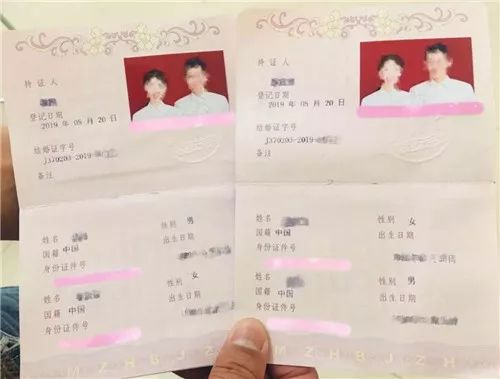 持证人
登记日期
2019 年 05 月 20 日
结婚证字号
J370203-2019-
备注
姓名
性别 男
国籍 中国
出生日期
身份证件号
姓名
性别 女
国籍 中国
出生日期
身份证件号
M Z H B J Z
持证人
登记日期
2019 年 05 月 20 日
结婚证字号
J370203-2019-
备注
姓名
性别 男
国籍 中国
出生日期
身份证件号
姓名
性别 女
国籍 中国
出生日期
身份证件号
M Z H B J Z